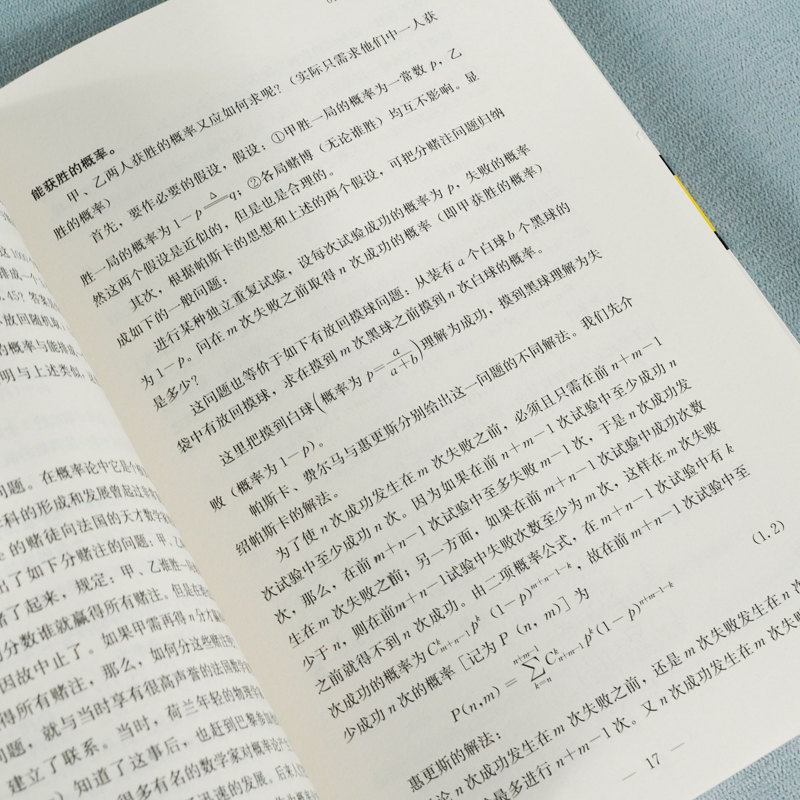 能获胜的概率。
甲、乙两人获胜的概率又应如何求呢？（实际只需求他们中一人获
胜的概率）
首先，要作必要的假设，假设：①甲胜一局的概率为一常数 p，乙
胜一局的概率为 1－p≜q；②各局赌博（无论谁胜）均互不影响。显
然这两个假设是近似的，但是也是合理的。
其次，根据帕斯卡的思想和上述的两个假设，可把分赌注问题归纳
成如下的一般问题：
进行某种独立重复试验，设每次试验成功的概率为 p，失败的概率
为 1－p。问在 m 次失败之前取得 n 次成功的概率（即甲获胜的概率）
是多少？
这问题也等价于如下有放回摸球问题：从装有 a 个白球 b 个黑球的
袋中有放回摸球，求在摸到 m 次黑球之前摸到 n 次白球的概率。
这里把摸到白球(概率为 p=a/(a+b))理解为成功，摸到黑球理解为失
败（概率为 1－p）。
帕斯卡、费尔马与惠更斯分别给出这一问题的不同解法。我们先介
绍帕斯卡的解法。
为了使 n 次成功发生在 m 次失败之前，必须且只需在前 n＋m－1
次试验中至少成功 n 次。因为如果在前 n＋m－1 次试验中至少成功 n
次，那么，在前 m＋n－1 次试验中至多失败 m－1 次，于是 n 次成功发
生在 m 次失败之前；另一方面，如果在前 m＋n－1 次试验中成功次数
少于 n，则在前 m＋n－1 试验中失败次数至少为 m 次，这样在 m 次失败
之前就得不到 n 次成功。由二项概率公式，在 m＋n－1 次试验中有 k
次成功的概率为 C^k_{m+n-1} p^k (1－p)^{m+n-1-k}，故在前 m＋n－1 次试验中至
少成功 n 次的概率［记为 P（n，m）］为
P(n,m) = ∑_{k=n}^{n+m-1} C^k_{n+m-1} p^k (1－p)^{n+m-1-k} (1.2)
惠更斯的解法：
论 n 次成功发生在 m 次失败之前，还是 m 次失败发生在 n 次
最多进行 n＋m－1 次。又 n 次成功发生在 m 次失败
— 17 —
45？答案
放回随机
的概率与能排
明与上述类似，
问题。在概率论中它是个
科的形成和发展曾起过
的赌徒向法国的天才数学
出了如下分赌注的问题：甲、乙
赌了起来，规定：甲、乙谁胜一
的分数谁就赢得所有赌注。但是在
因故中止了。如果甲需再得 n 分才
得所有赌注，那么，如何分这些赌注
问题，就与当时享有很高声誉的法国数学
建立了联系。当时，荷兰年轻的物理学
）知道了这事后，也赶到巴黎参加
很多有名的数学家对概率论产
了迅速的发展，后来人